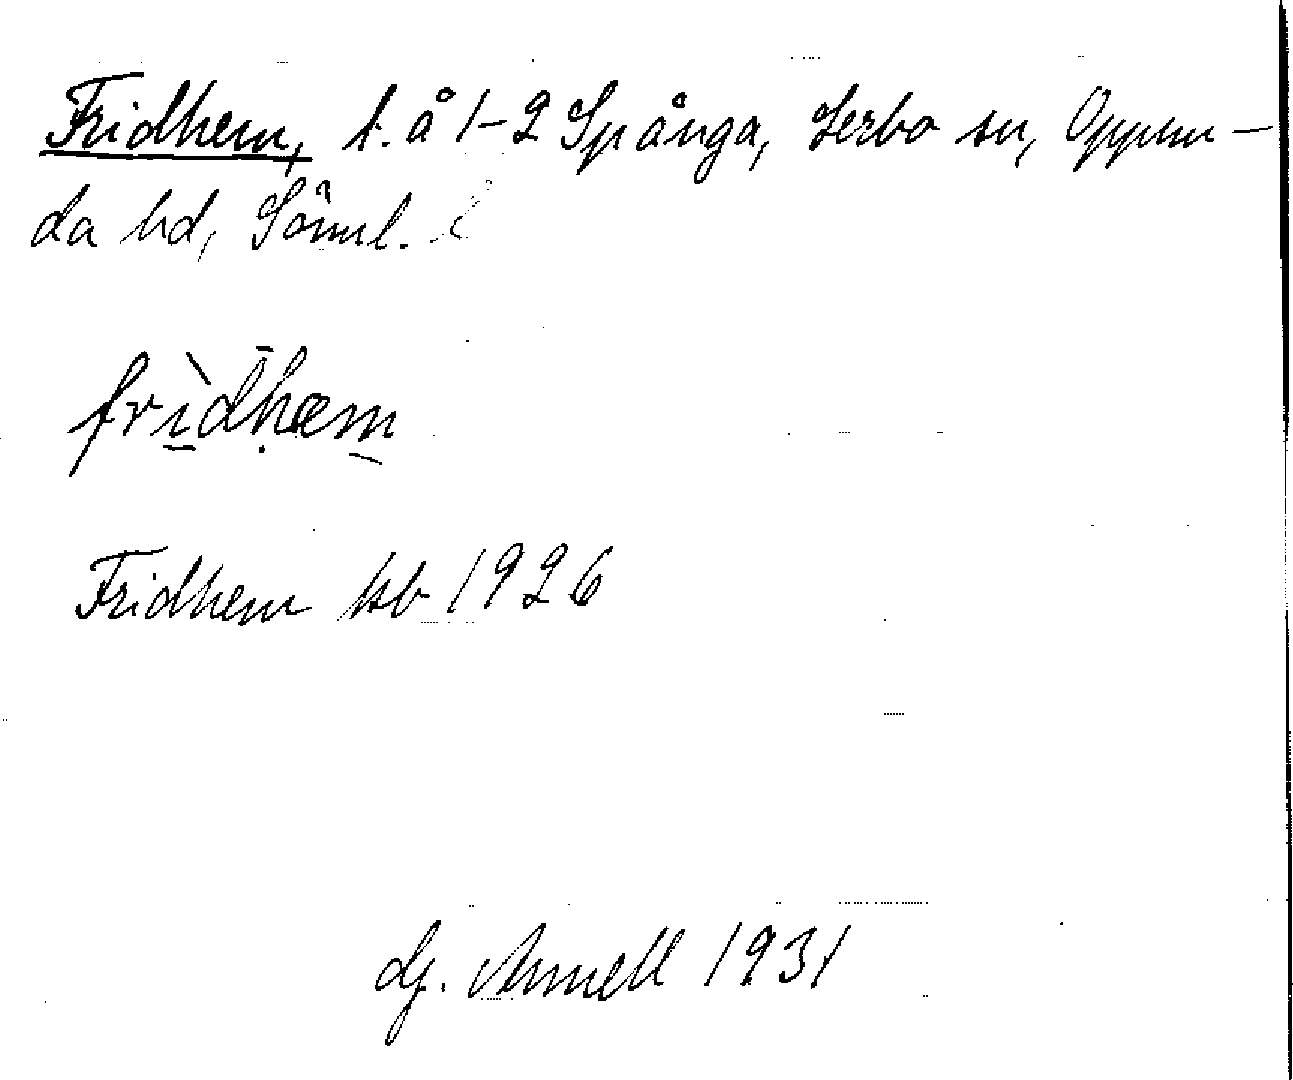 Fridhem, t. å 1-2 Spånga, Lerbo sn, Oppun-
da hd, Söml. l
frìdhæm
Fridhem kb 1926
G. Arnell 1931